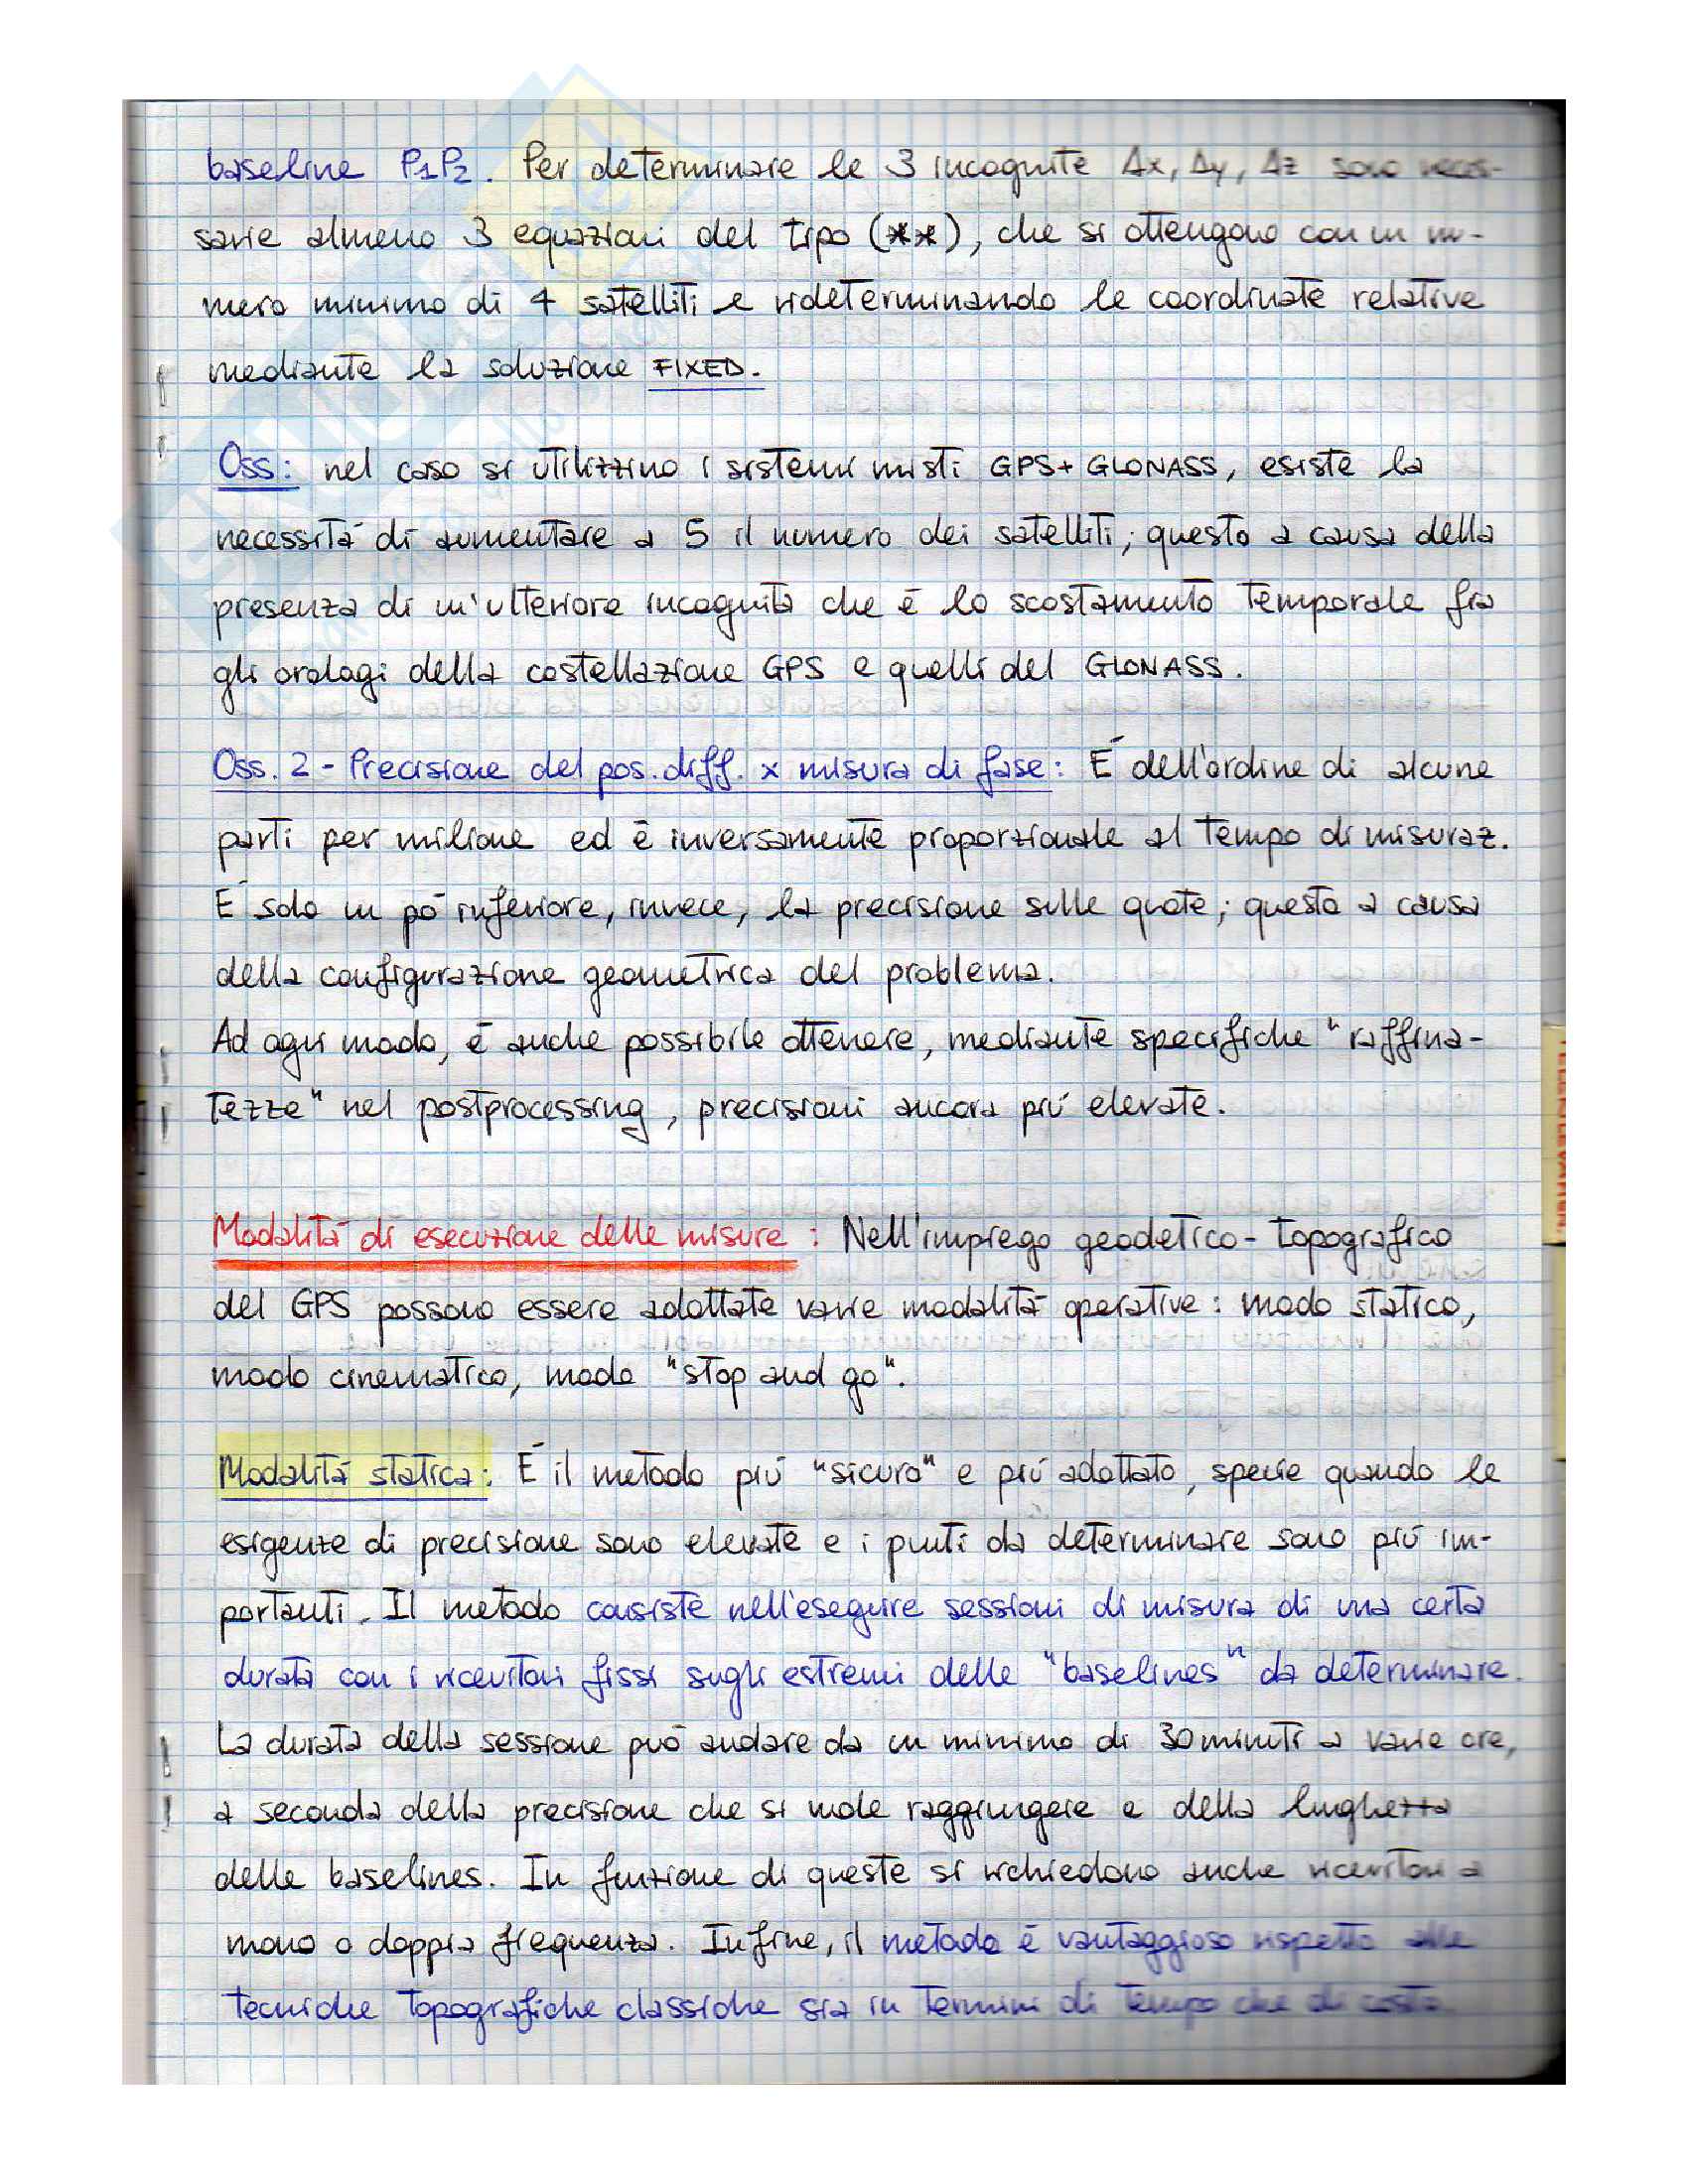 baseline P1P2. Per determinare le 3 incognite Δx, Δy, Δz sono neces-
sarie almeno 3 equazioni del tipo (**), che si ottengono con un nu-
mero minimo di 4 satelliti e rideterminando le coordinate relative
mediante la soluzione FIXED.
Oss: nel caso si utilizzino i sistemi misti GPS+GLONASS, esiste la
necessità di aumentare a 5 il numero dei satelliti; questo a causa della
presenza di un'ulteriore incognita che è lo scostamento temporale fra
gli orologi della costellazione GPS e quelli del GLONASS.
Oss. 2 - Precisione del pos. diff. x misura di fase: È dell'ordine di alcune
parti per milione ed è inversamente proporzionale al tempo di misuraz.
È solo un pò inferiore, invece, la precisione sulle quote; questo a causa
della configurazione geometrica del problema.
Ad ogni modo, è anche possibile ottenere, mediante specifiche "raffina-
tezze" nel postprocessing, precisioni ancora più elevate.
Modalità di esecuzione delle misure: Nell'impiego geodetico-topografico
del GPS possono essere adottate varie modalità operative: modo statico,
modo cinematico, modo "stop and go".
Modalità statica: È il metodo più "sicuro" e più adottato, specie quando le
esigenze di precisione sono elevate e i punti da determinare sono più im-
portanti. Il metodo consiste nell'eseguire sessioni di misura di una certa
durata con i ricevitori fissi sugli estremi delle "baselines" da determinare.
La durata della sessione può andare da un minimo di 30 minuti a varie ore,
a seconda della precisione che si vuole raggiungere e della lunghezza
delle baselines. In funzione di queste si richiedono anche ricevitori a
mono o doppia frequenza. Infine, il metodo è vantaggioso rispetto alle
tecniche topografiche classiche sia in termini di tempo che di costo.